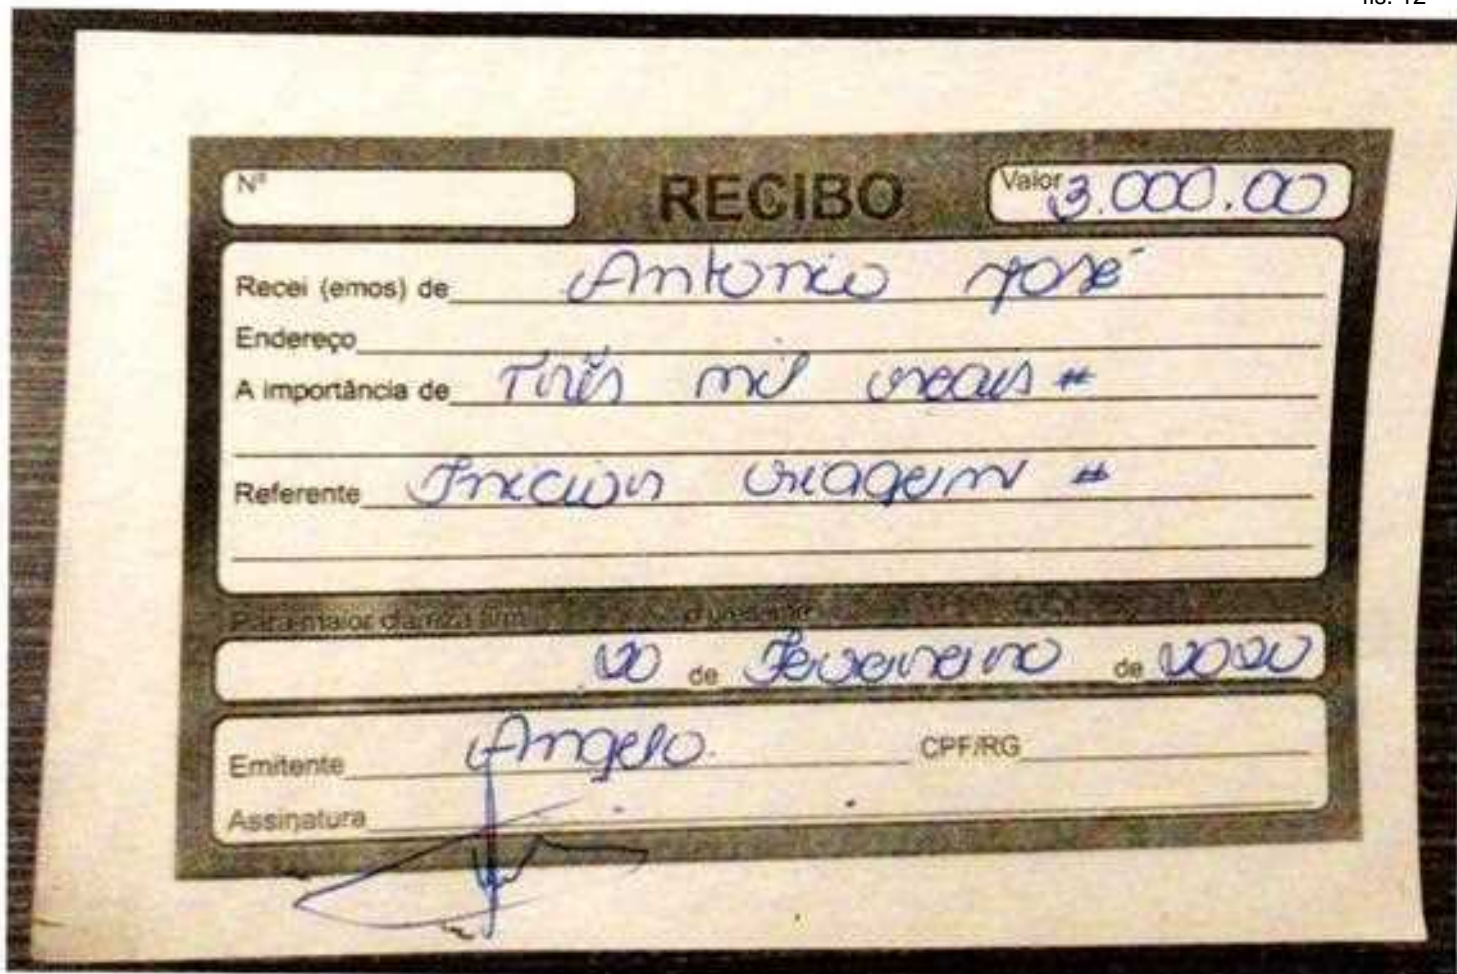 fls. 12
Nº RECIBO Valor 3.000.00
Recei (emos) de Antonio José
Endereço
A importância de Três mil reais #
Referente viagem #
Para maior clareza
20 de Fevereiro de 2020
Emitente Angelo. CPF/RG
Assinatura